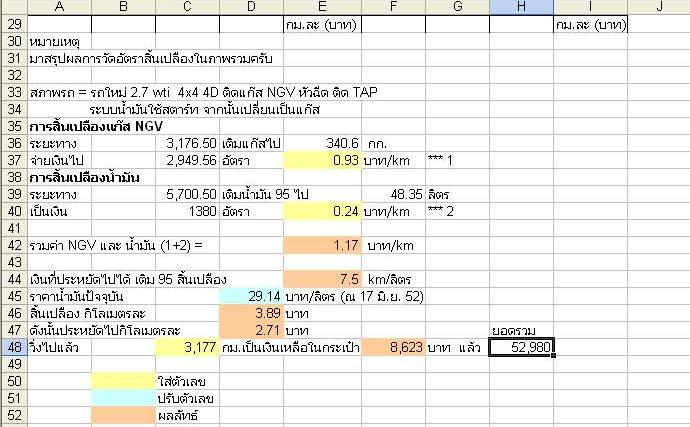 A B C D E F G H I J
29 กม.ละ (บาท) กม.ละ (บาท)
30 หมายเหตุ
31 มาสรุปผลการวัดอัตราสิ้นเปลืองในภาพรวมครับ
32
33 สภาพรถ = รถใหม่ 2.7 wti 4x4 4D ติดแก๊ส NGV หัวฉีด ติด TAP
34 ระบบน้ำมันใช้สตาร์ท จากนั้นเปลี่ยนเป็นแก๊ส
35 การสิ้นเปลืองแก๊ส NGV
36 ระยะทาง 3,176.50 เติมแก๊สไป 340.6 กก.
37 จ่ายเงินไป 2,949.56 อัตรา 0.93 บาท/km *** 1
38 การสิ้นเปลืองน้ำมัน
39 ระยะทาง 5,700.50 เติมน้ำมัน 95 ไป 48.35 ลิตร
40 เป็นเงิน 1380 อัตรา 0.24 บาท/km *** 2
41
42 รวมค่า NGV และ น้ำมัน (1+2) = 1.17 บาท/km
43
44 เงินที่ประหยัดไปได้ เติม 95 สิ้นเปลือง 7.5 km/ลิตร
45 ราคาน้ำมันปัจจุบัน 29.14 บาท/ลิตร (ณ 17 มิ.ย. 52)
46 สิ้นเปลือง กิโลเมตรละ 3.89 บาท
47 ดังนั้นประหยัดไปกิโลเมตรละ 2.71 บาท ยอดรวม
48 วิ่งไปแล้ว 3,177 กม.เป็นเงินเหลือในกระเป๋า 8,623 บาท แล้ว 52,980
49
50 ใส่ตัวเลข
51 ปรับตัวเลข
52 ผลลัทธ์